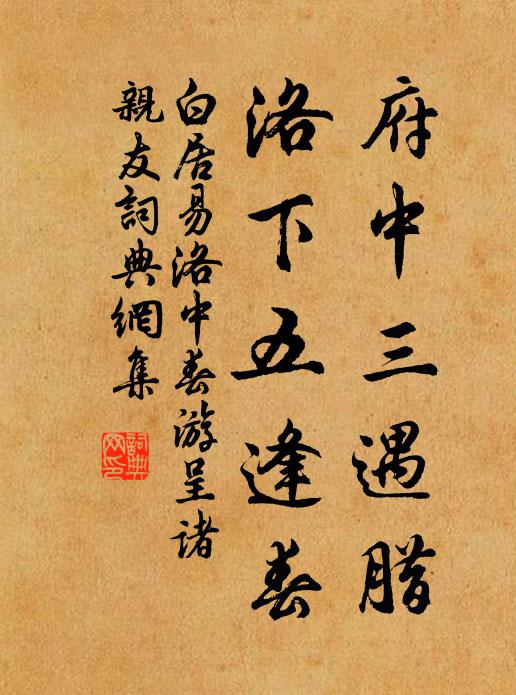 府中三遇腊
洛下五逢春
白居易洛中春游呈诸
親友詞典網集
詞典
网印